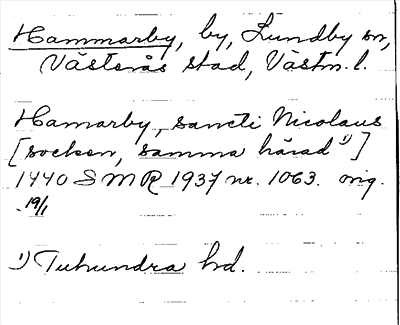 Hammarby, by, Lundby sn,
Västerås stad, Västm. l.
Hamarby, sancti Nicolaus
[socken, samma härad ¹)]
1440 SMR 1937 nr. 1063. orig.
19/1
¹) Tuhundra hd.